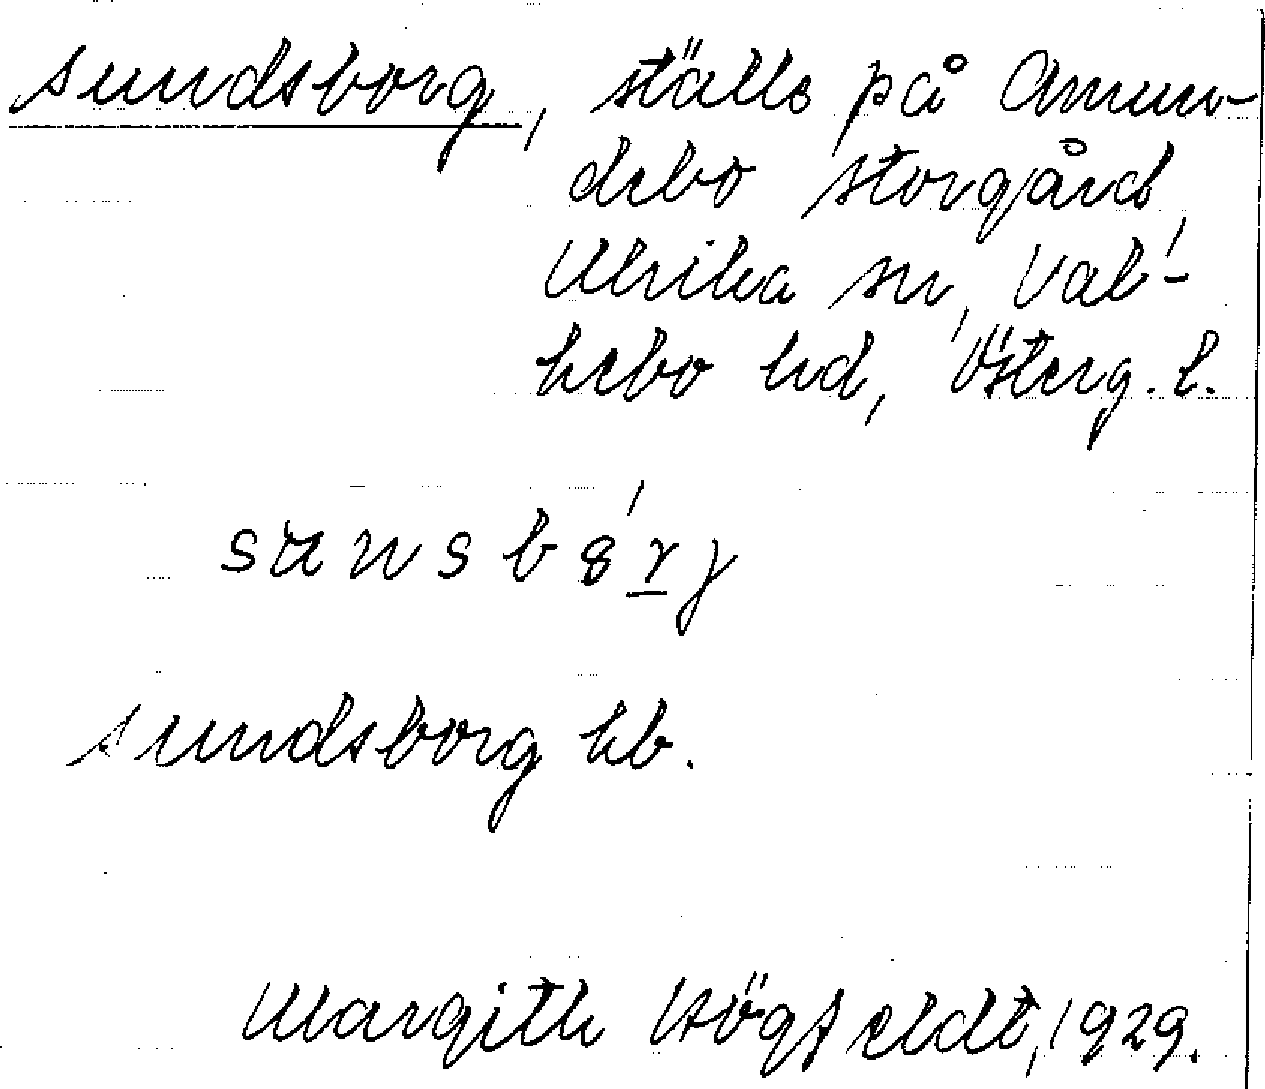 Sundsborg, ställe på Amun-
debo storgård,
Ulrika sn, Val-
kebo hd, Österg. l.
sunsbórj
Sundsborg hb.
Margith Högfeldt, 1929.